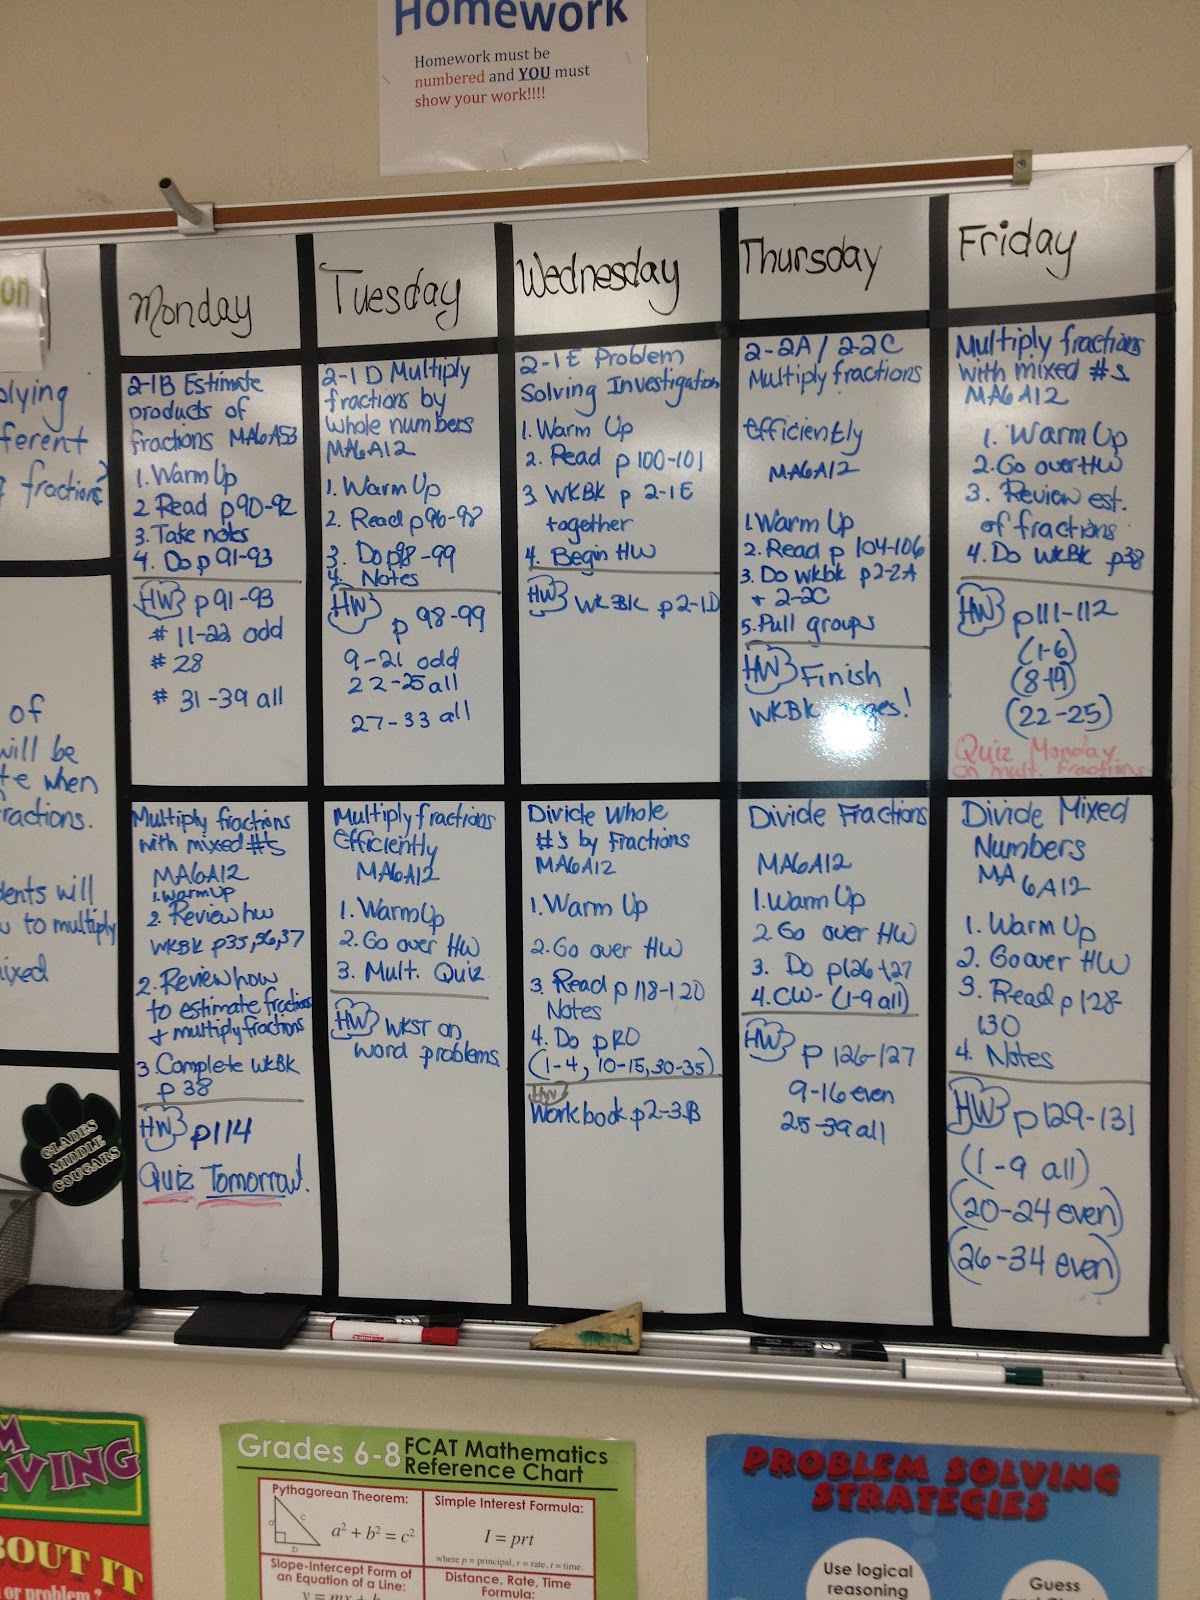 Homework
Homework must be
numbered and YOU must
show your work!!!!
on
Monday
Tuesday
Wednesday
Thursday
Friday
olying
ferent
fractions?
of
will be
te when
ractions.
dents will
to multiply
ixed
2-1B Estimate
products of
fractions MA6A53
1. Warm Up
2 Read p90-92
3. Take notes
4. Do p 91-93
HW p 91-93
# 11-22 odd
# 28
# 31-39 all
2-1D Multiply
fractions by
whole numbers
MA6A12
1. Warm Up
2. Read p96-98
3. Do p98-99
4. Notes
HW p 98-99
9-21 odd
22-25 all
27-33 all
2-1E Problem
Solving Investigation
1. Warm Up
2. Read p 100-101
3 WKBK p 2-1E
together
4. Begin HW
HW WKBK p 2-1D
2-2A / 2-2C
Multiply fractions
efficiently
MA6A12
1. Warm Up
2. Read p 104-106
3. Do wkbk p2-2A
+ 2-2C
5. Pull groups
HW Finish
WKBK pages!
Multiply fractions
with mixed #s
MA6A12
1. Warm Up
2. Go over HW
3. Review est.
of fractions
4. Do WKBK p38
HW p111-112
(1-6)
(22-25)
Quiz Monday
on mult. fractions
Multiply fractions
with mixed #'s
MA6A12
1. Warm up
2. Review hw
WKBK p35,36,37
2. Review how
to estimate fractions
+ multiply fractions
3. Complete WKBK
p 38
HW p114
Quiz Tomorrow!
Multiply fractions
Efficiently
MA6A12
1. Warm Up
2. Go over HW
3. Mult. Quiz
HW WKST on
word problems
Divide Whole
#'s by Fractions
MA6A12
1. Warm Up
2. Go over HW
3. Read p 118-120
Notes
4. Do p
(1-4, 10-15, 30-35)
HW
Workbook p2-3B
Divide Fractions
MA6A12
1. Warm Up
2. Go over HW
3. Do p126+27
4. CW- (1-9 all)
HW p 126-127
9-16 even
25-39 all
Divide Mixed
Numbers
MA6A12
1. Warm Up
2. Go over HW
3. Read p 128-
130
4. Notes
HW p129-131
(1-9 all)
(20-24 even)
(26-34 even)
GLADES
MIDDLE
COUGARS
M
VING
BOUT IT
or problem?
Grades 6-8 FCAT Mathematics
Reference Chart
Pythagorean Theorem:
a² + b² = c²
Simple Interest Formula:
I = prt
where p = principal, r = rate, t = time.
Slope-Intercept Form of
an Equation of a Line:
Distance, Rate, Time
Formula:
PROBLEM SOLVING
STRATEGIES
Use logical
reasoning
Guess